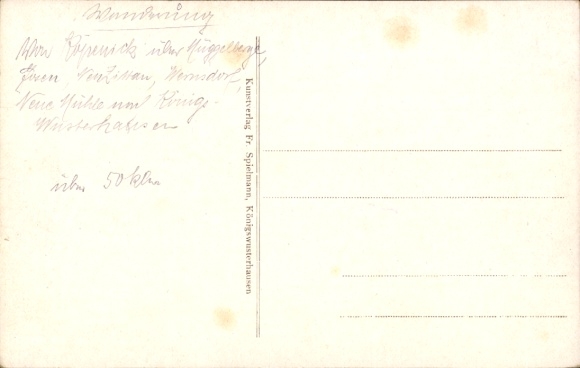 Wanderung
Von Köpenick über Müggelberge,
Neu Zittau, Wernsdorf,
Neue Mühle und Königs-
Wusterhausen
über 50 klm
Kunstverlag Fr. Spielmann, Königswusterhausen